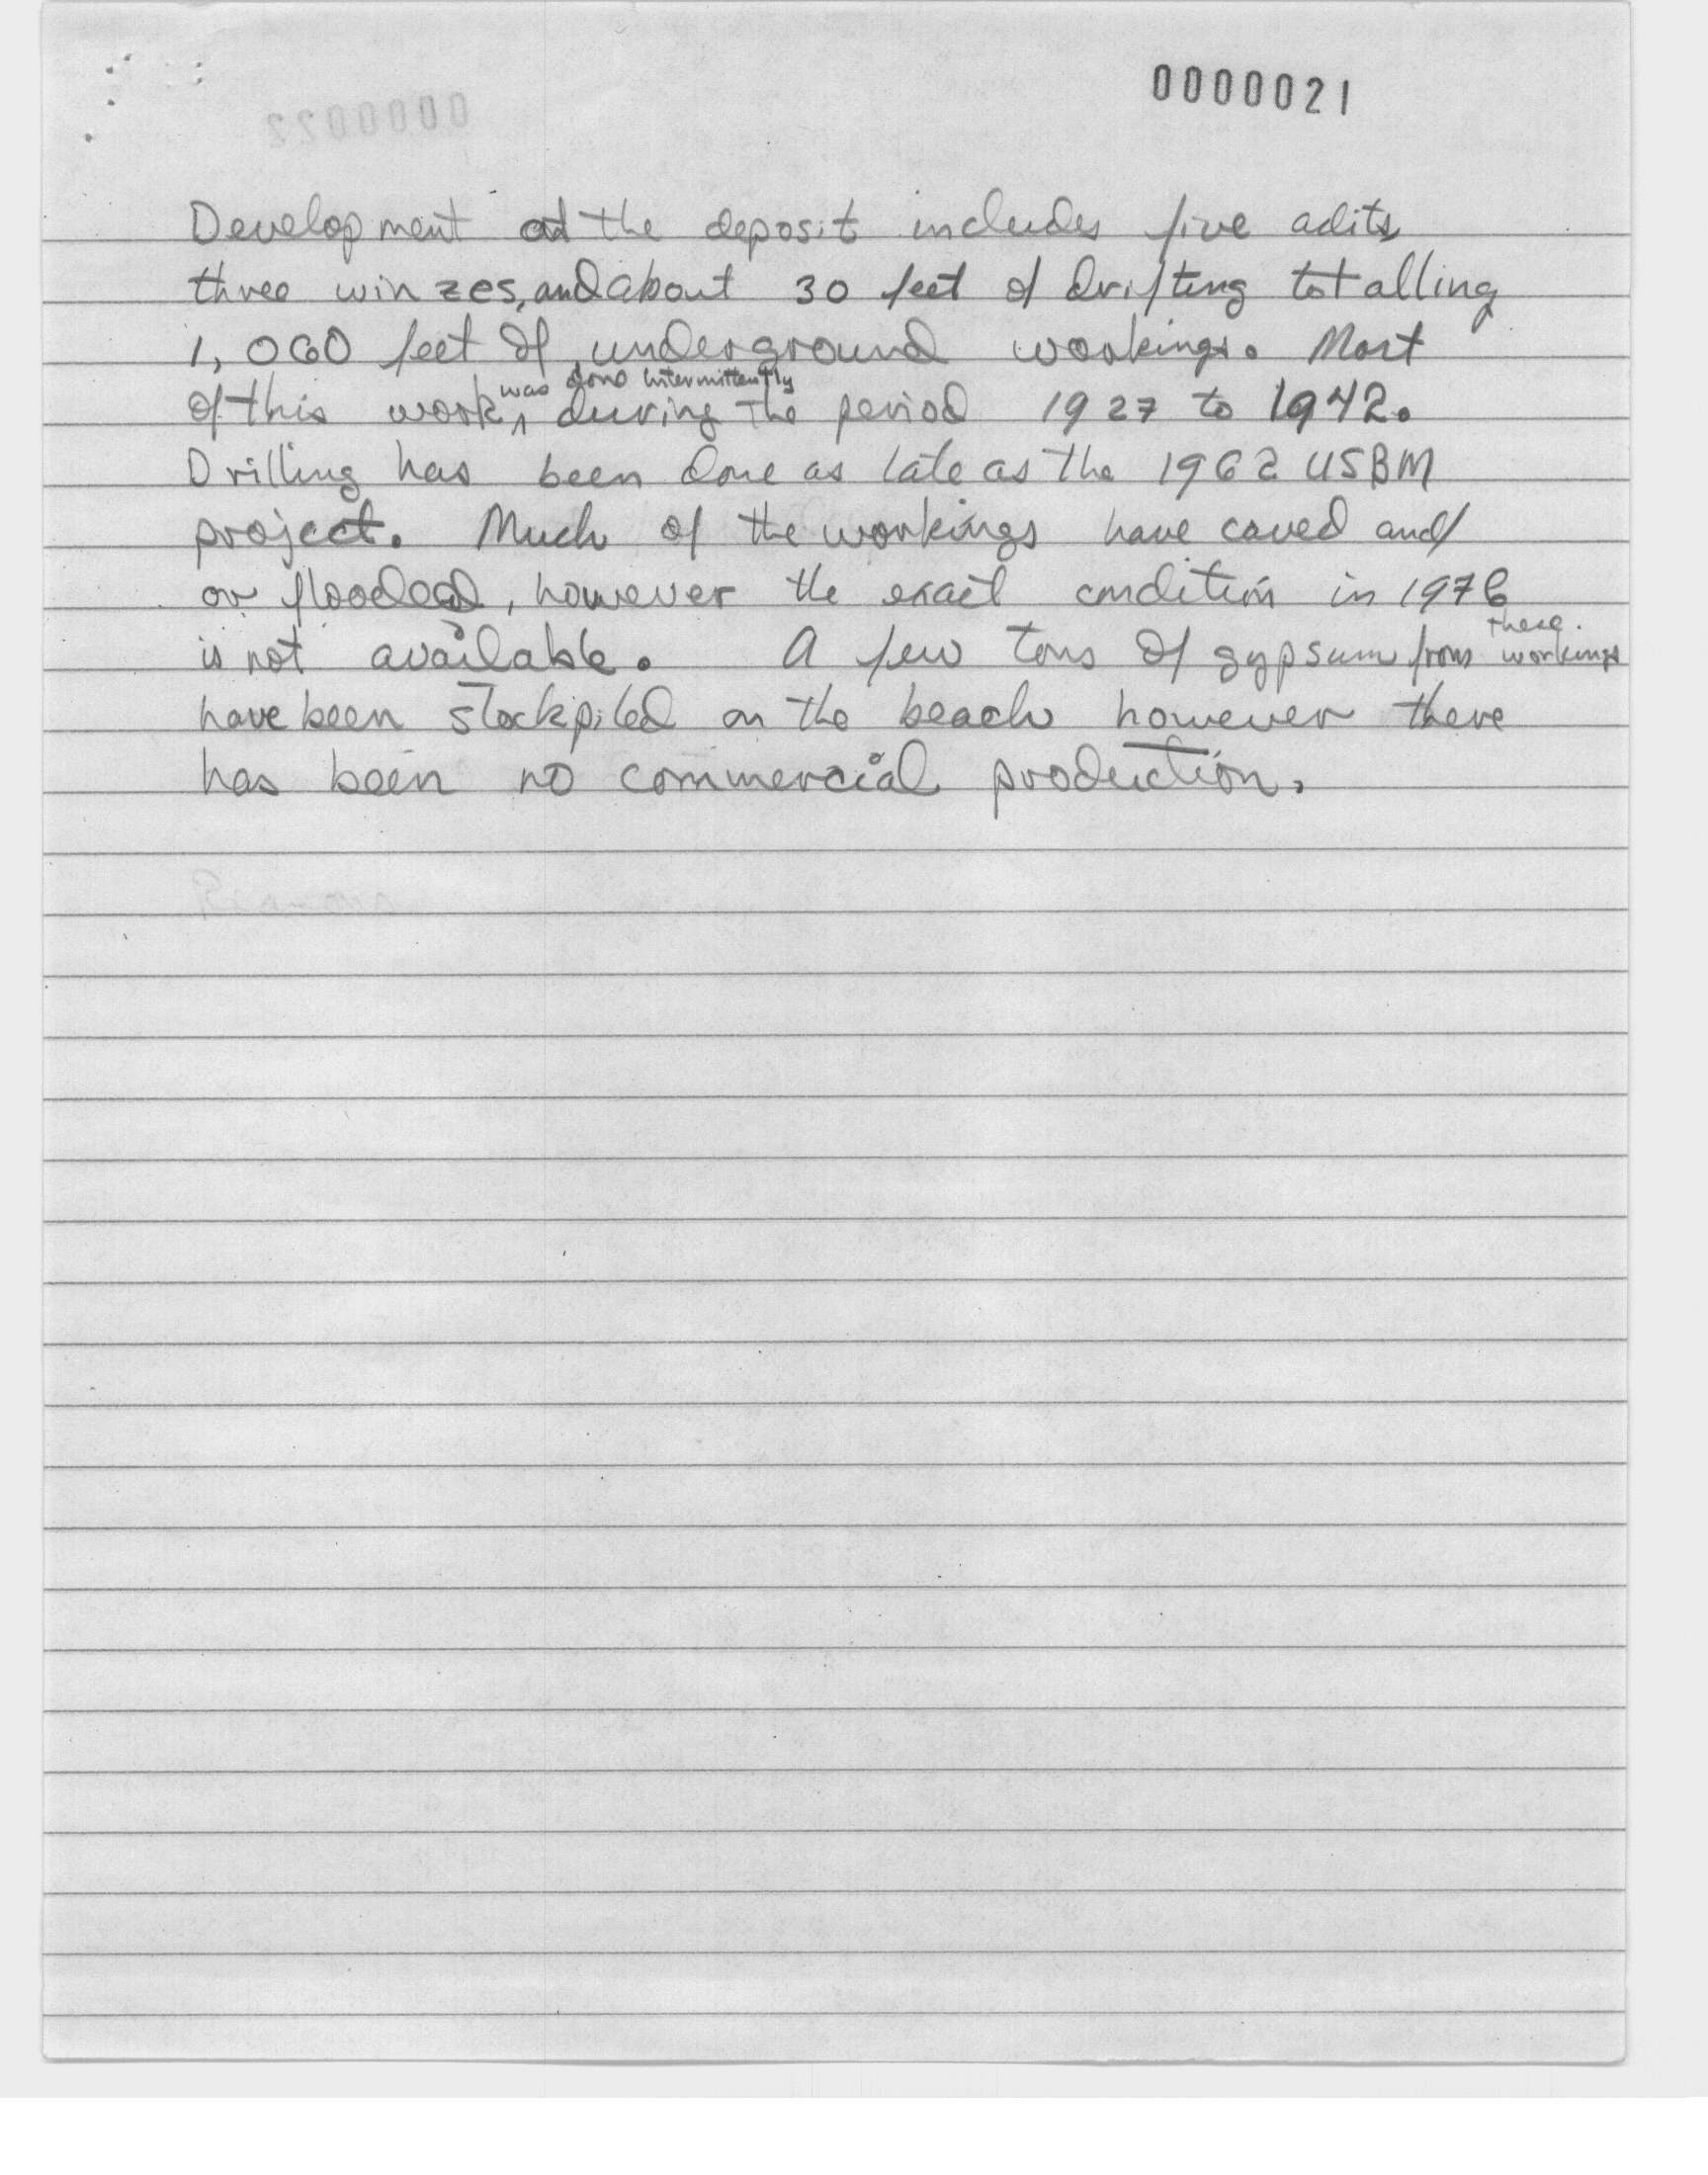 0000021
0000022
Development at the deposit includes five adits,
three winzes, and about 30 feet of drifting totalling
1,060 feet of underground workings. Most
of this work was done intermittently during the period 1927 to 1942.
Drilling has been done as late as the 1962 USBM
project. Much of the workings have caved and/
or flooded, however the exact condition in 1976
is not available. A few tons of gypsum from these workings
have been stockpiled on the beach however there
has been no commercial production.